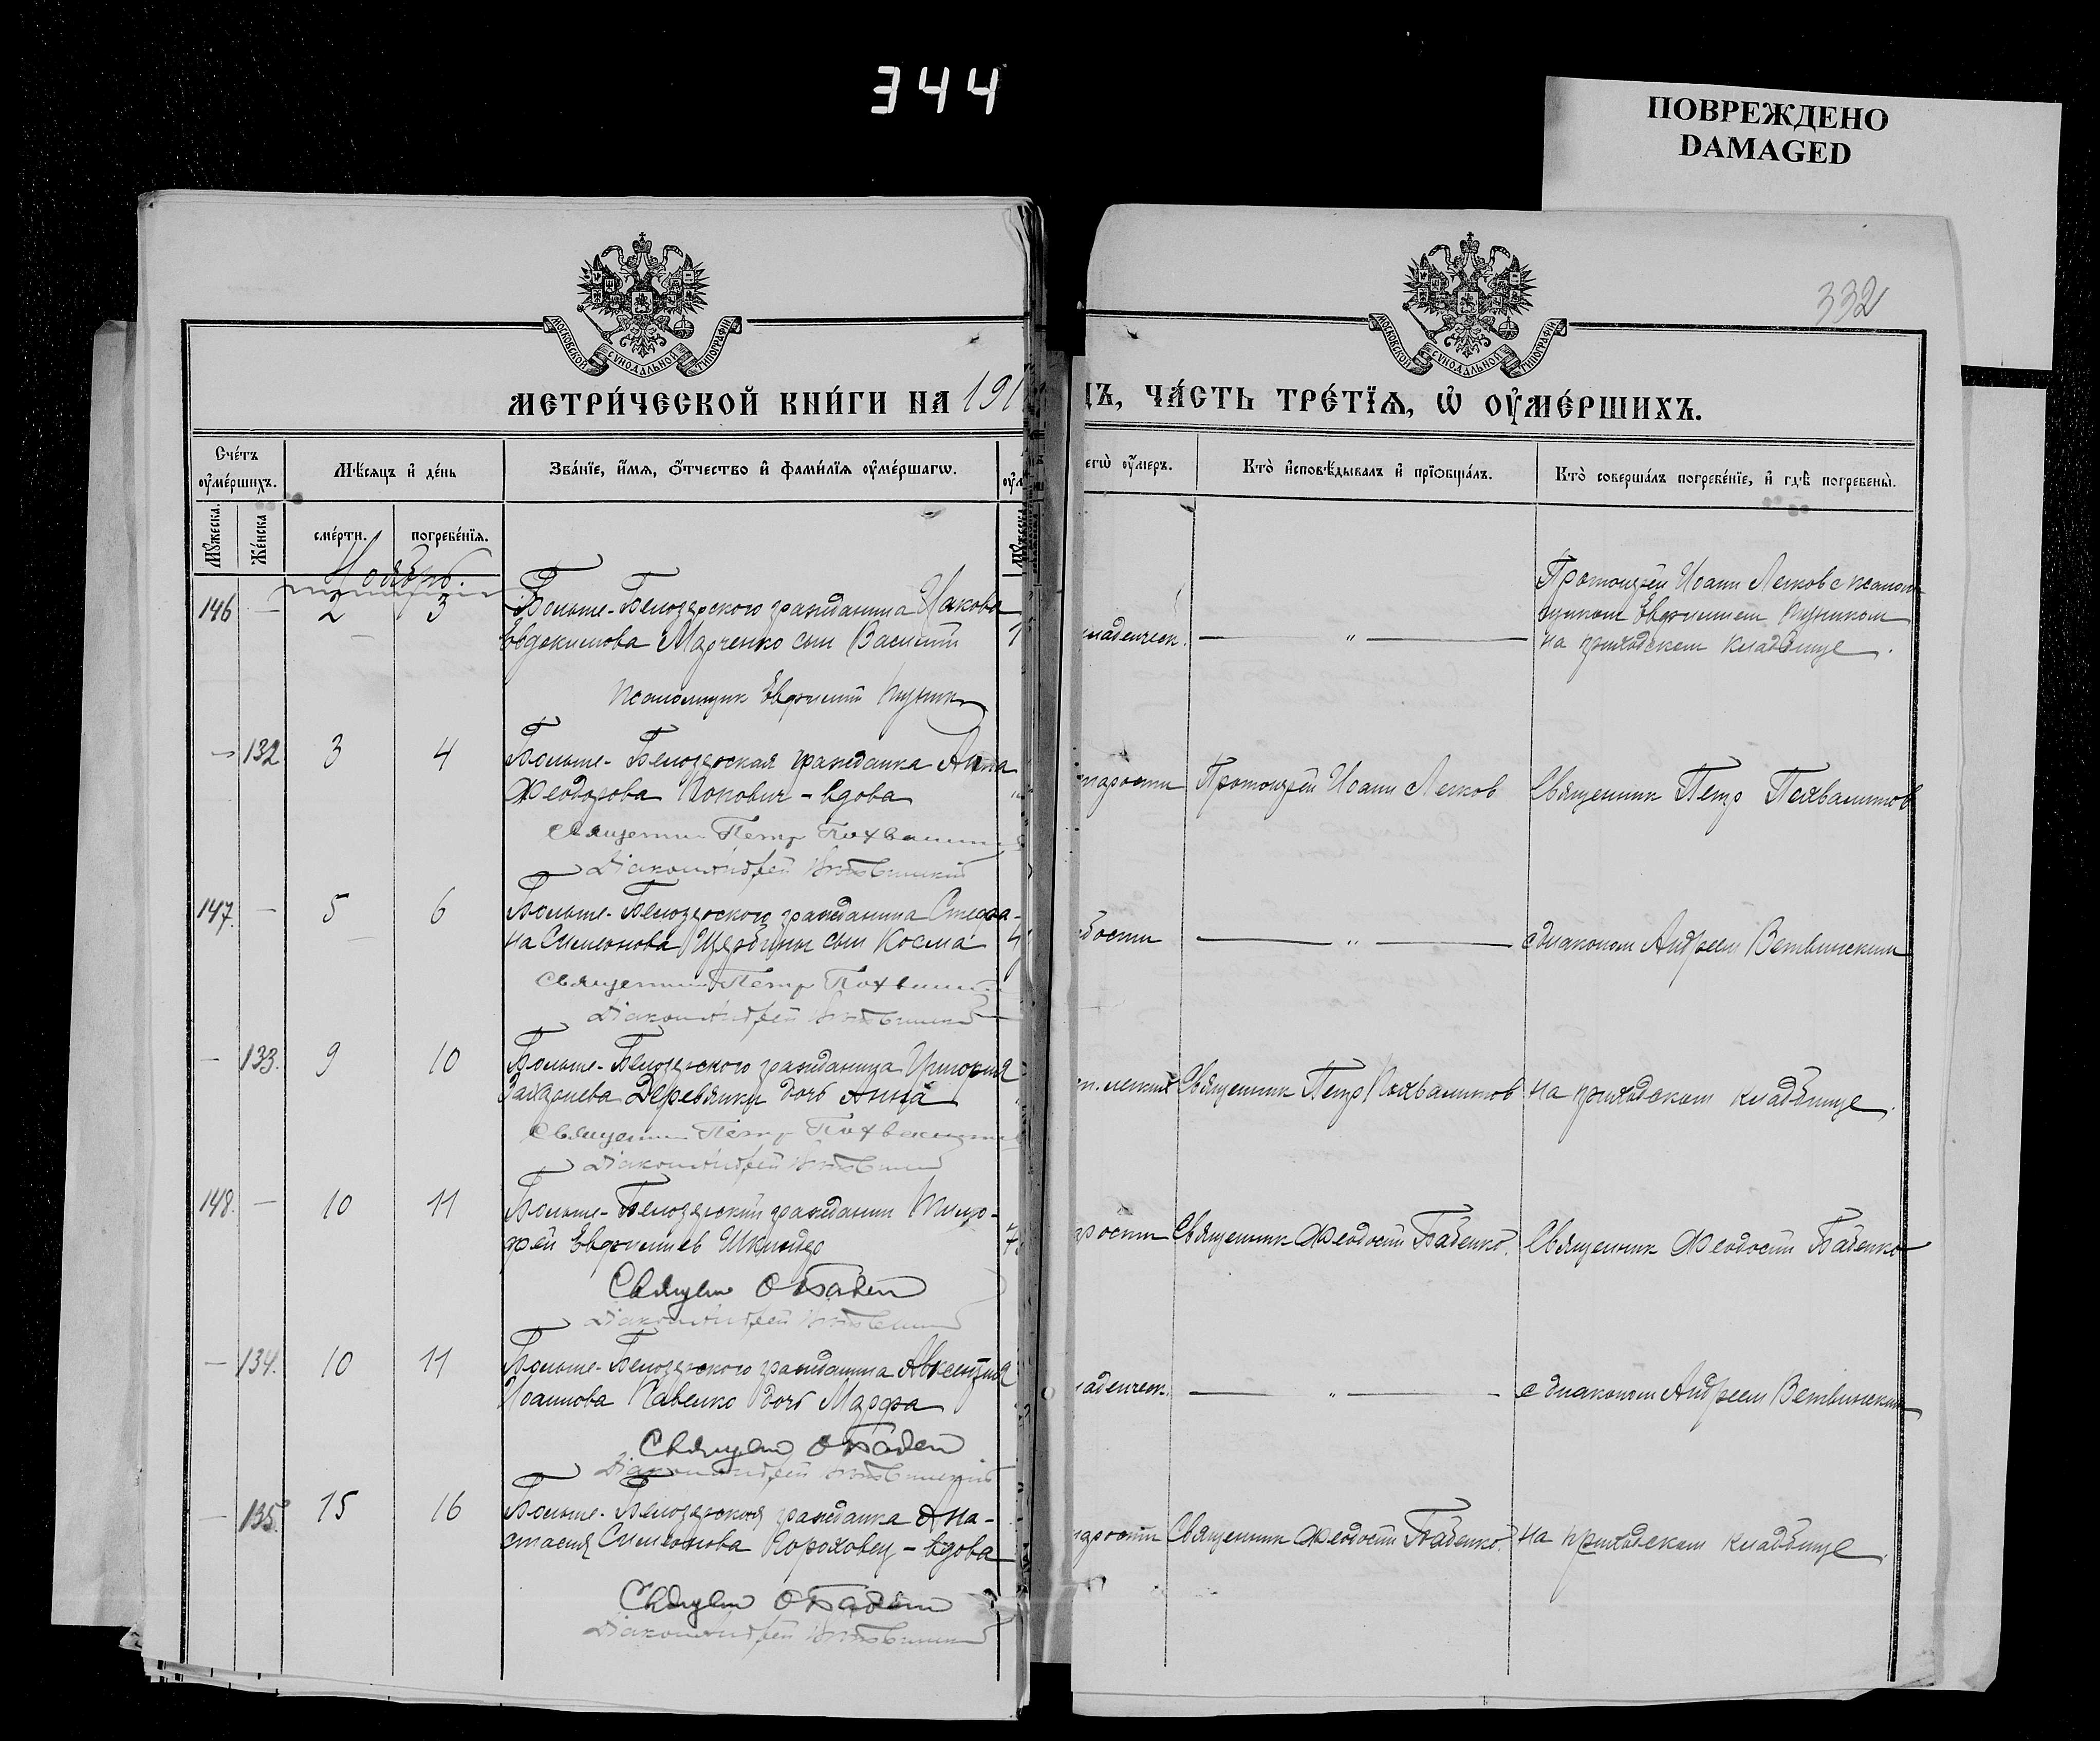 344
ПОВРЕЖДЕНО
DAMAGED
332
МОСКОВСКОЙ СѴНОДАЛЬНОЙ ТИПОГРАФІИ
МОСКОВСКОЙ СѴНОДАЛЬНОЙ ТИПОГРАФІИ
МЕТРИ́ЧЕСКОЙ КНИ́ГИ НА 191
ЦЪ, ЧА́СТЬ ТРЕ́ТЇѦ, Ѡ ОУ҆МЕ́РШИХЪ.
Сче́тъ оу҆ме́ршихъ.
Мѣ́сѧцъ и҆ де́нь
Зва́нїе, и҆́мѧ, ѻ҆́тчество и҆ фами́лїѧ оу҆ме́ршагѡ.
егѡ̀ оу҆́меръ.
Кто̀ и҆сповѣ́дывалъ и҆ прїѡбща́лъ.
Кто̀ соверша́лъ погребе́нїе, и҆ гдѣ̀ погребены̀.
Мꙋ́жеска.
Же́нска
сме́рти.
погребе́нїѧ.
Ноябрь.
146 — 2 3 Больше-Белозерского гражданина Иакова
Евдокимова Марченко сын Василий 1
Псаломщик Евфимий
младенческ. — „ —
Протоиерей Иоанн Легков с псалом
щиком Евфимием
на приходском кладбище.
— 132 3 4 Больше-Белозерская гражданка Анна
Феодорова Попович - вдова
Священник Петр Похвалит
Діакон Андрей Ветвинский
старости Протоиерей Иоанн Легков Священник Петр Похвалитов
147. — 5 6 Больше-Белозерского гражданина Стефа-
на Симеонова Щербины сын Косма 4
Священник Петр Похвалит
Діакон Андрей Ветвинский
бости — „ — с диаконом Андреем Ветвинским
— 133. 9 10 Больше-Белозерского гражданина Григория
Захариева Деревянки дочь Анна
Священник Петр Похвалитов
Діакон Андрей Ветвинский
Священник Петр Похвалитов на приходском кладбище.
148. — 10 11 Больше-Белозерский гражданин Тимо-
фей Евфимиев 7
Священ Ѳ Бабен
Діакон Андрей Ветвинский
арости Священник Феодосий Бабенко. Священник Феодосий Бабенко
— 134. 10 11 Больше-Белозерского гражданина Авксентия
Иоаннова Павленко дочь Марфа
Священ Ѳ Бабен
Діакон Андрей Ветвинский
ладенческ. — „ — с диаконом Андреем Ветвинским
— 135. 15 16 Больше-Белозерская гражданка Ана-
стасия Симеонова Гороховец - вдова
Священ Ѳ Бабен
Діакон Андрей Ветвинский
тарости Священник Феодосий Бабенко. на приходском кладбище.